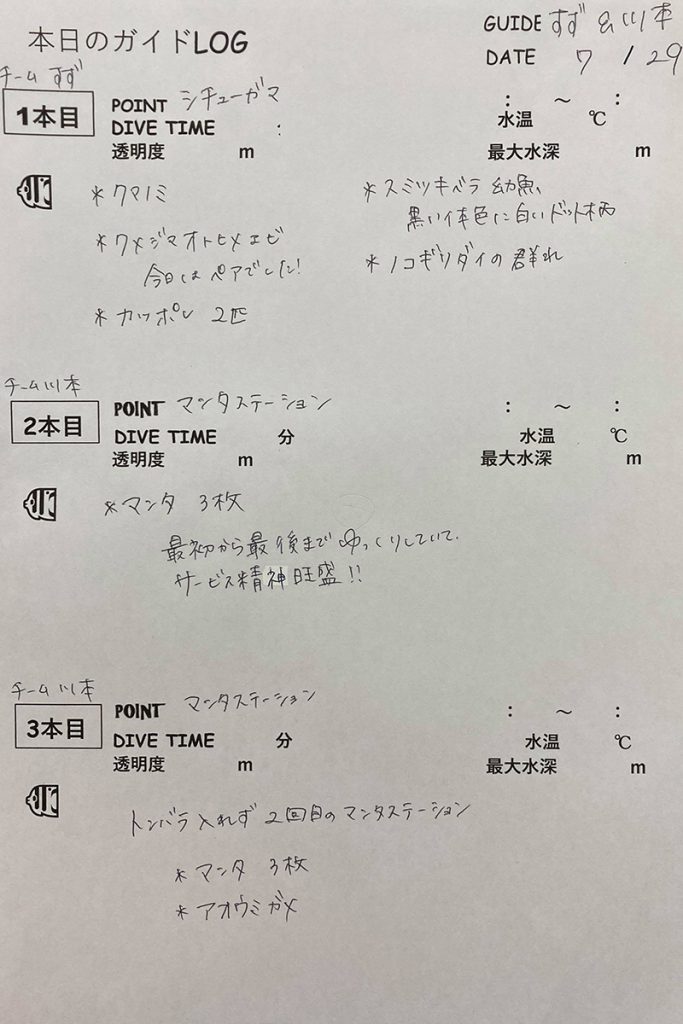 本日のガイドLOG
GUIDE すず & 川本
DATE 7 / 29
チーム すず
1本目
POINT シチューガマ
: ～ :
DIVE TIME :
水温 ℃
透明度 m
最大水深 m
*クマノミ
*クメジマオトヒメエビ
今日はペアでした!
*カッポレ 2匹
*スミツキベラ 幼魚、
黒い体色に白いドット柄
*ノコギリダイの群れ
チーム川本
2本目
POINT マンタステーション
: ～ :
DIVE TIME 分
水温 ℃
透明度 m
最大水深 m
*マンタ 3枚
最初から最後までゆっくりしていて、
サービス精神旺盛!!
チーム川本
3本目
POINT マンタステーション
: ～ :
DIVE TIME 分
水温 ℃
透明度 m
最大水深 m
トンバラ入れず2回目のマンタステーション
*マンタ 3枚
*アオウミガメ